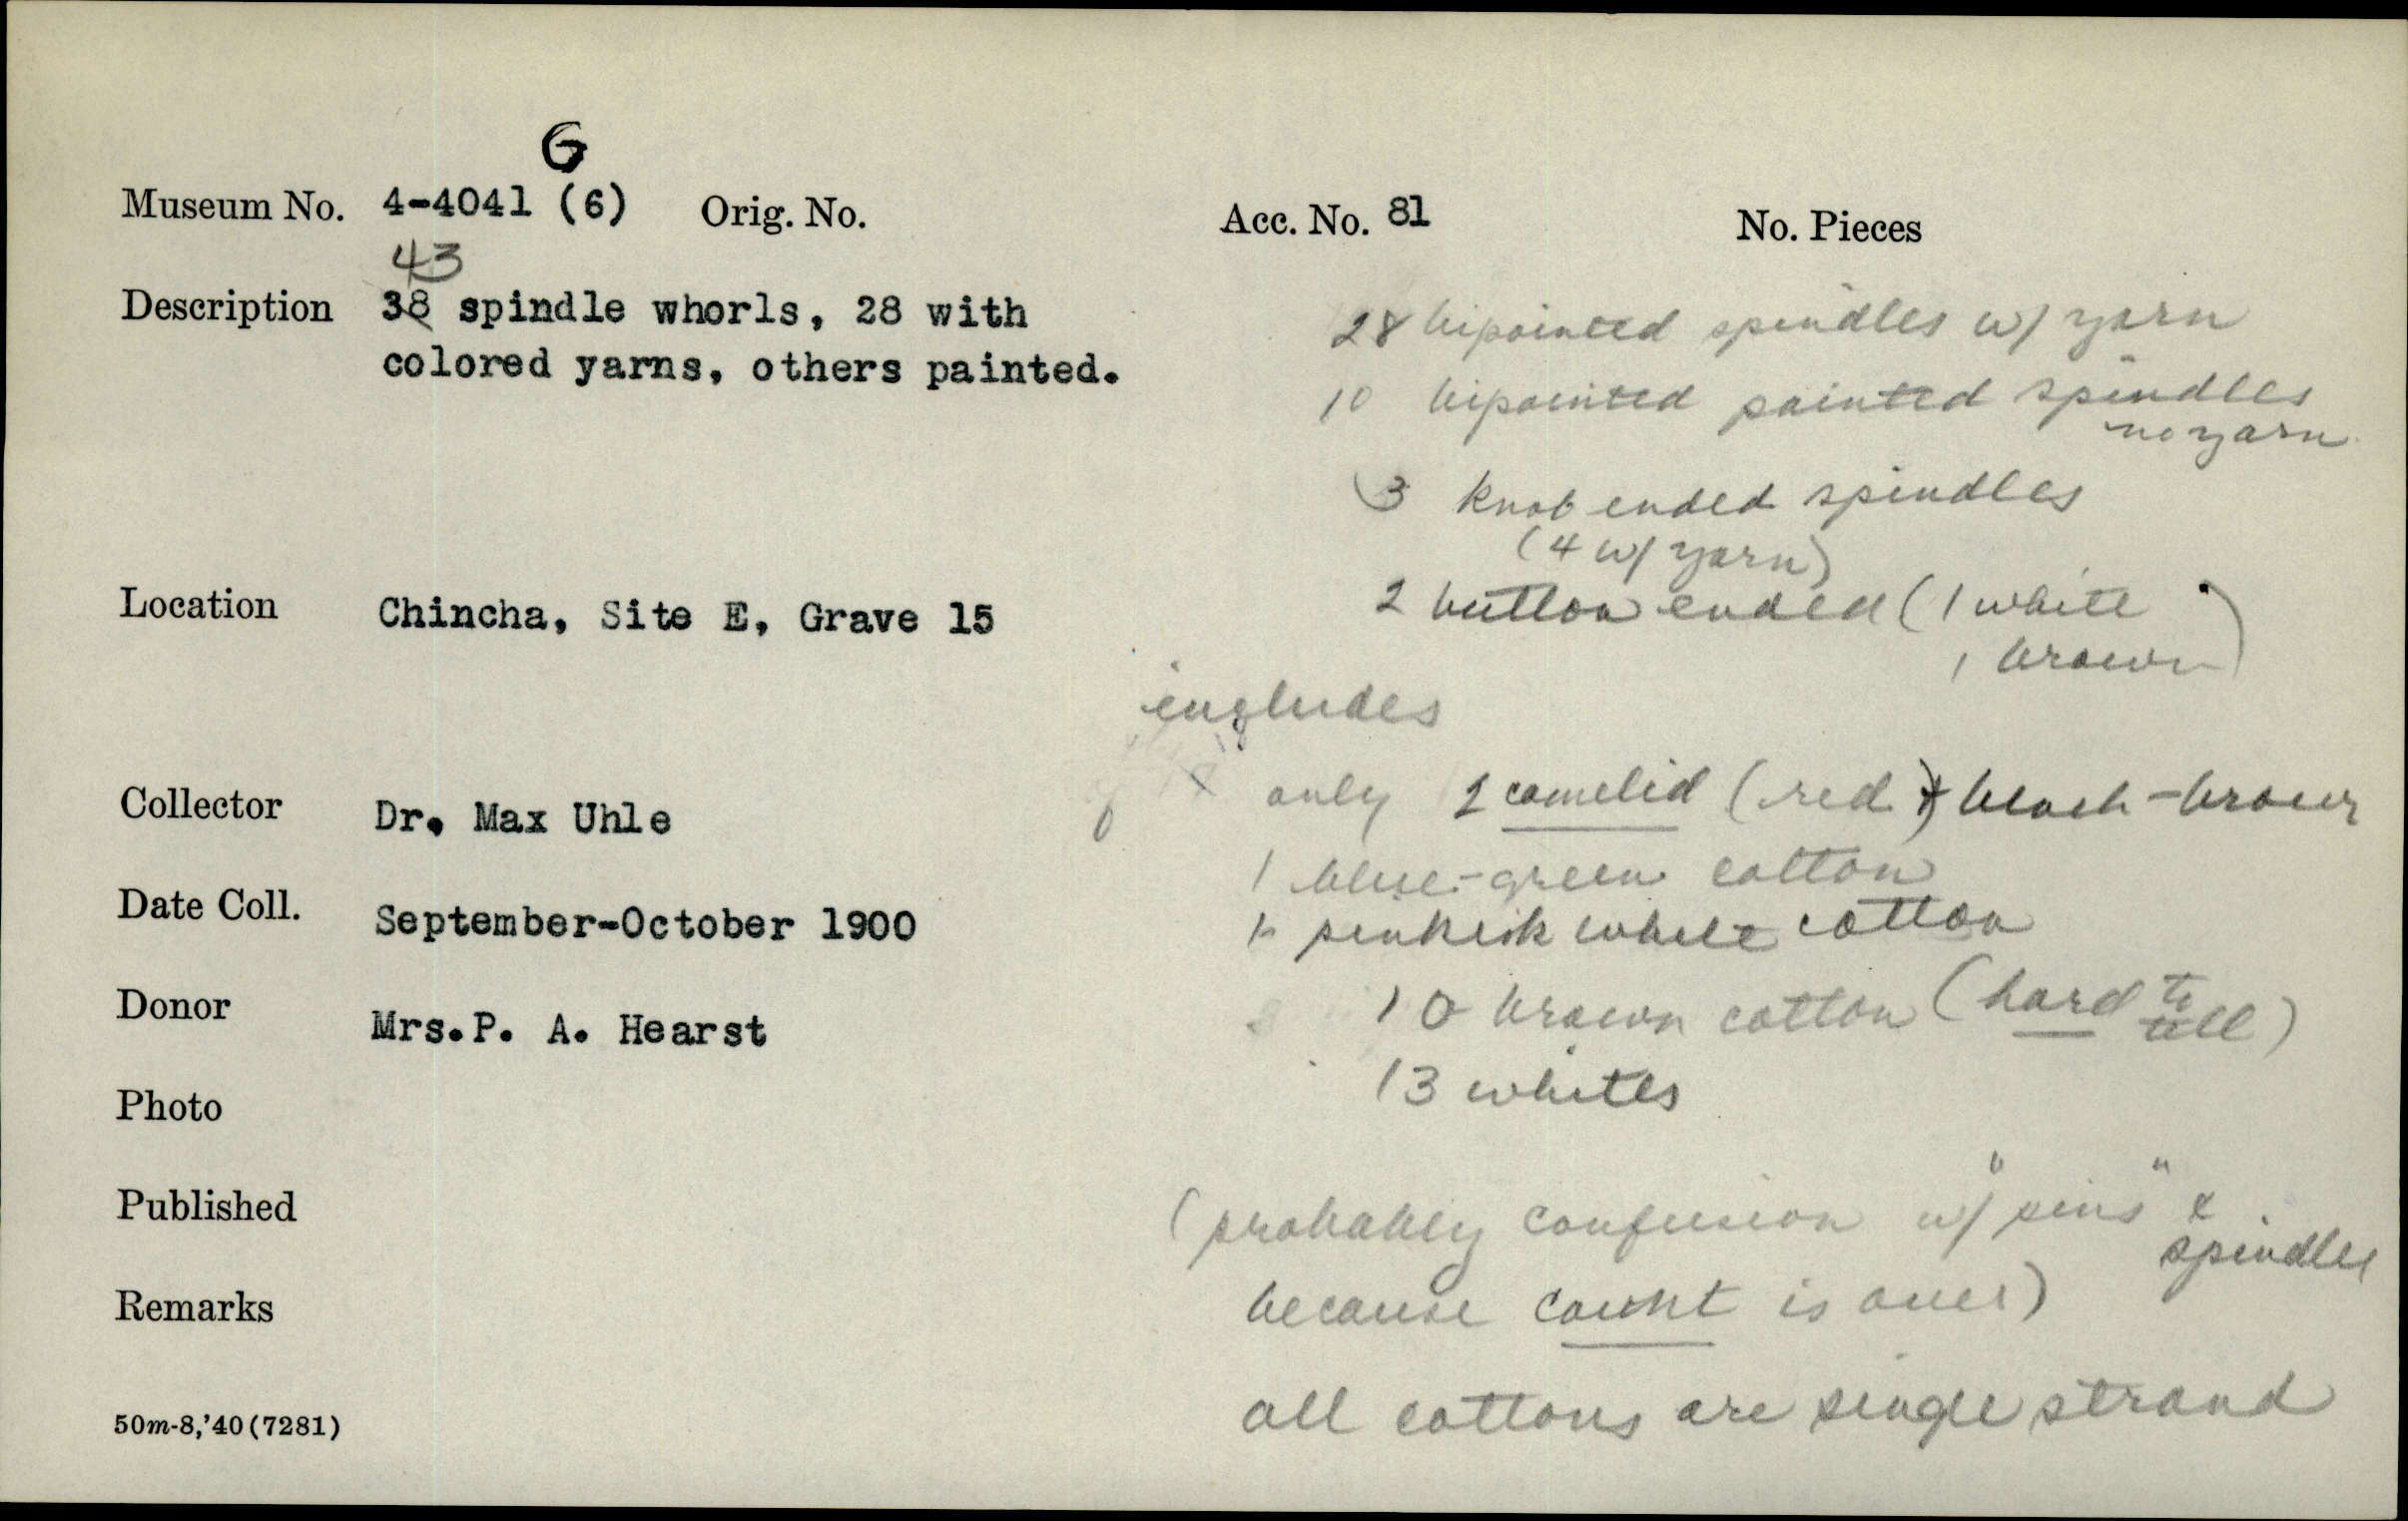 G
Museum No. 4-4041 (6) Orig. No. Acc. No. 81 No. Pieces
43
Description 38 spindle whorls, 28 with
colored yarns, others painted.
28 bipointed spindles w/ yarn
10 bipointed painted spindles
no yarn
3 knob ended spindles
(4 w/ yarn)
2 button ended (1 white
1 brown)
Location Chincha, Site E, Grave 15
includes
only 2 camelid (red) & black-brown
1 blue-green cotton
1 pinkish white cotton
10 brown cotton (hard to
tell)
13 whites
Collector Dr. Max Uhle
Date Coll. September-October 1900
Donor Mrs.P. A. Hearst
Photo
Published
Remarks
(probably confusion w/ "pins" &
spindles
because count is over)
all cottons are single strand
50m-8,'40(7281)